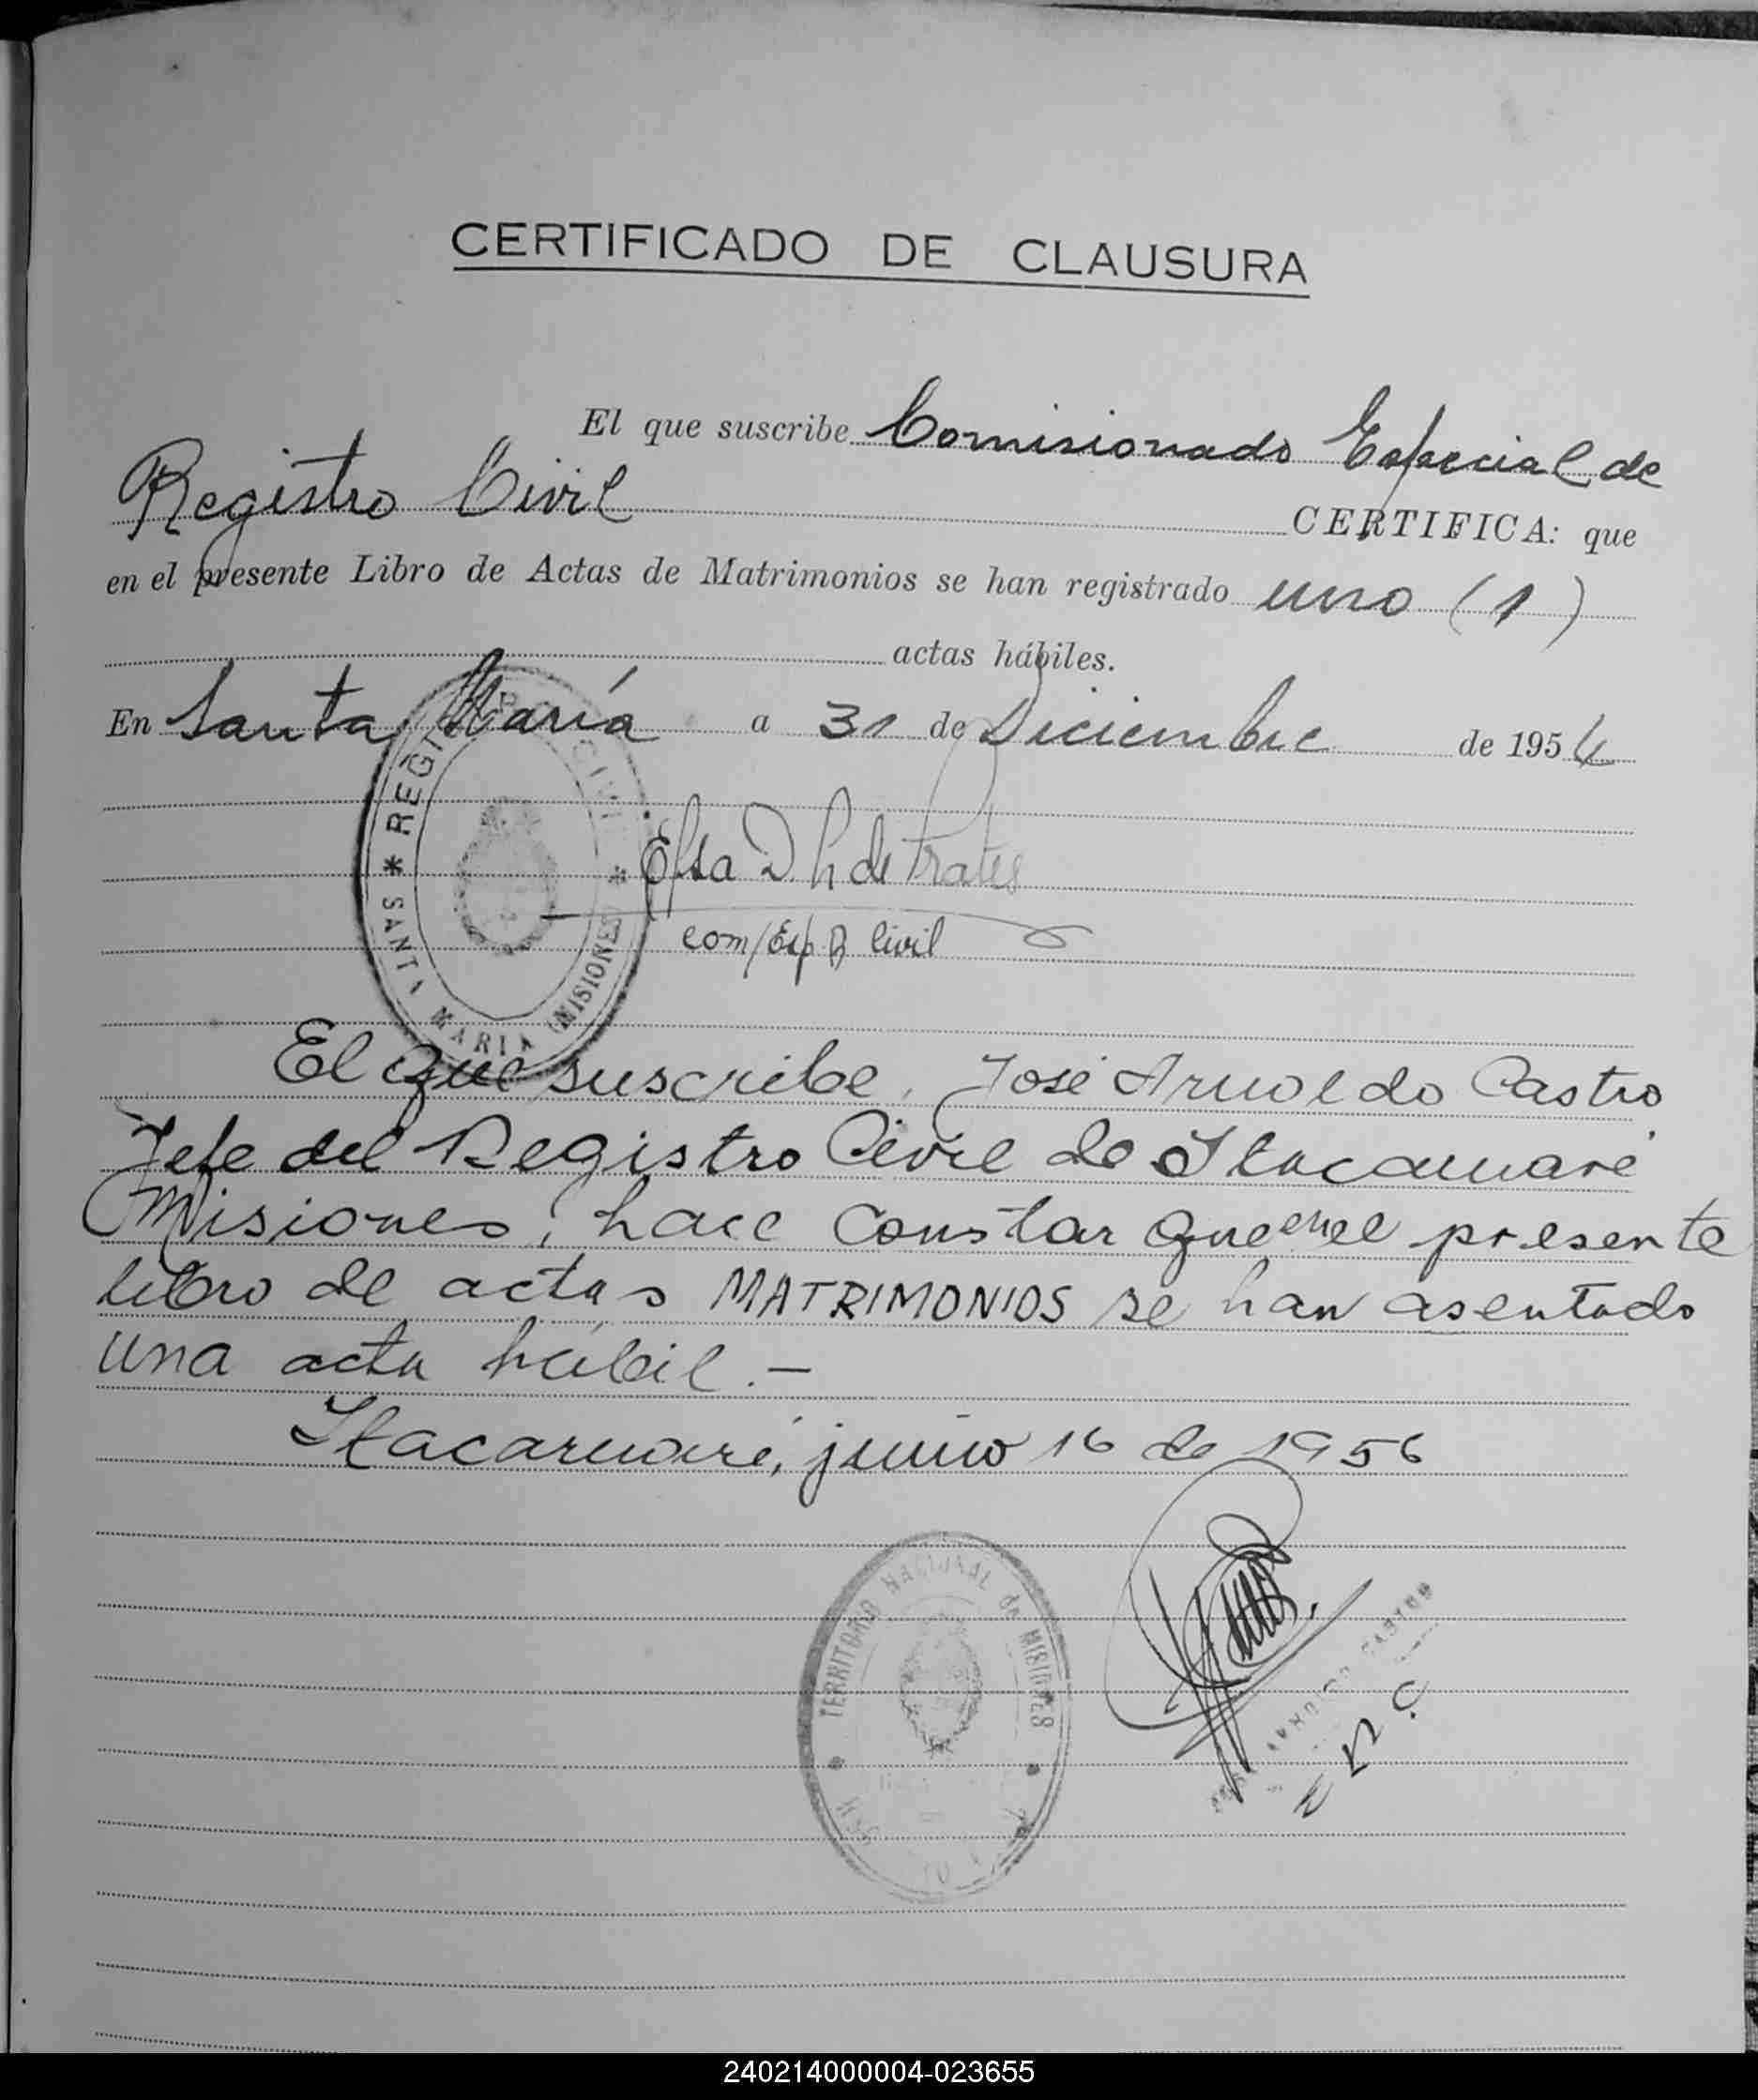 CERTIFICADO DE CLAUSURA
El que suscribe Comisionado Especial de
Registro Civil CERTIFICA: que
en el presente Libro de Actas de Matrimonios se han registrado uno (1)
actas hábiles.
En Santa María a 31 de Diciembre de 1954
REGISTRO CIVIL
* SANTA MARIA (MISIONES) *
Elsa D. h de Prates
com/Esp R Civil
El que suscribe, José Arnoldo Castro
Jefe del Registro Civil de Itacaruaré
Misiones, hace constar que en el presente
libro de actas MATRIMONIOS se han asentado
una acta hábil.-
Itacaruaré, junio 16 de 1956
TERRITORIO NACIONAL de MISIONES
CASTRO
240214000004-023655